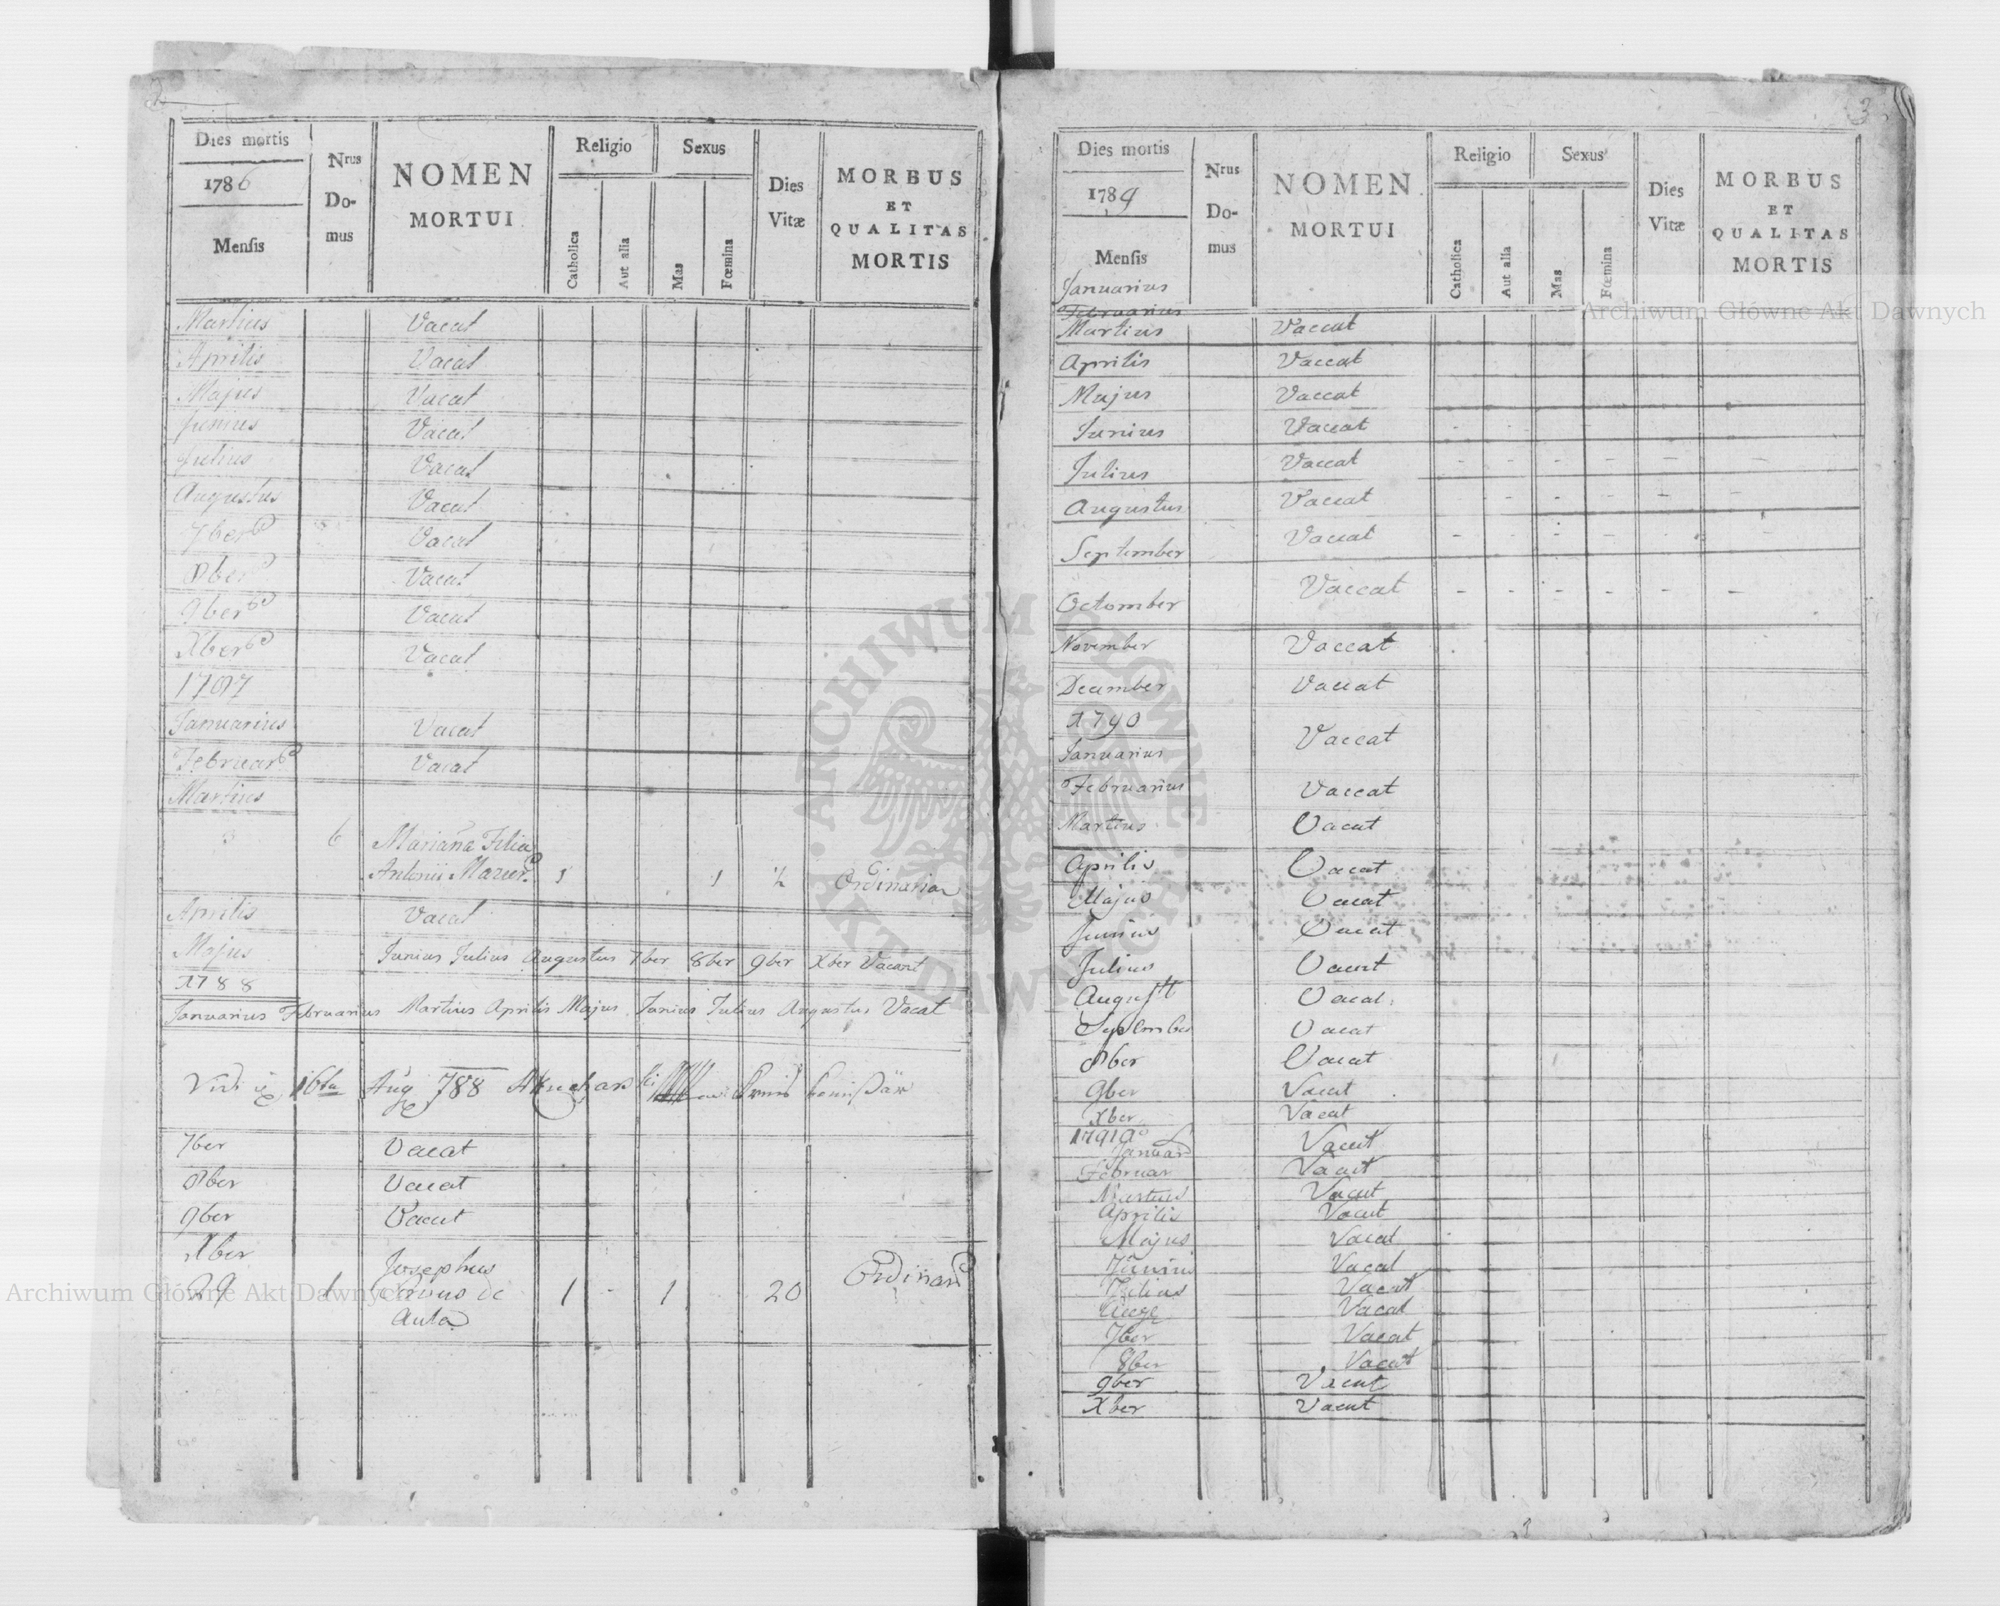 2
Dies mortis
1786
Mensis
Nrus
Do-
mus
NOMEN
MORTUI
Religio
Catholica
Aut alia
Sexus
Mas
Fœmina
Dies
Vitæ
MORBUS
ET
QUALITAS
MORTIS
Martius Vacat
Aprilis Vacat
Majus Vacat
Junius Vacat
Julius Vacat
Augustus Vacat
7ber Vacat
8ber Vacat
9ber Vacat
Xber Vacat
1787
Januarius Vacat
Februar Vacat
Martius
3 6 Mariana Filia
Antonii 1 1 Ordinaria
Aprilis Vacat
Majus Junius Julius Augustus 7ber 8ber 9ber Xber Vacant
1788
Januarius Februarius Martius Aprilis Majus Junius Julius Augustus Vacat
Vidi 16ta Aug 788
7ber Vacat
8ber Vacat
9ber Vacat
Xber Josephus
29 1 de 1 - 1 20 Ordinar
3
Dies mortis
1789
Mensis
Nrus
Do-
mus
NOMEN
MORTUI
Religio
Catholica
Aut alia
Sexus
Mas
Fœmina
Dies
Vitæ
MORBUS
ET
QUALITAS
MORTIS
Januarius
Februarius
Martius Vaccat
Aprilis Vaccat
Majus Vaccat
Junius Vaccat
Julius Vaccat - - - - - -
Augustus Vaccat - - - - -
September Vaccat - - - - -
Octomber Vaccat - - - - - -
November Vaccat
December Vaccat
1790
Januarius Vaccat
Februarius Vaccat
Martius Vacat
Aprilis Vacat
Majus Vacat
Junius Vacat
Julius Vacat
August Vacat
September Vacat
8ber Vacat
9ber Vacat
Xber Vacat
1791
Januar Vacat
Februar Vacat
Martius Vacat
Aprilis Vacat
Majus Vacat
Junius Vacat
Julius Vacat
Aug Vacat
7ber Vacat
8ber Vacat
9ber Vacat
Xber Vacat
Archiwum Główne Akt Dawnych
Archiwum Główne Akt Dawnych
ARCHIWUM GŁÓWNE AKT DAWNYCH